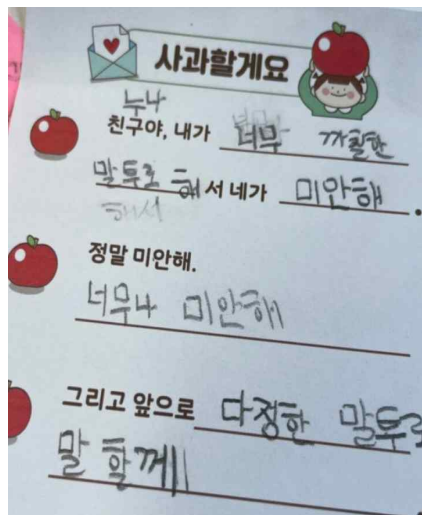 사과할게요
누나
친구야, 내가 너무 까칠한
말투로 해서 네가 미안해.
해서
정말 미안해.
너무나 미안해
그리고 앞으로 다정한 말투로
말 할께